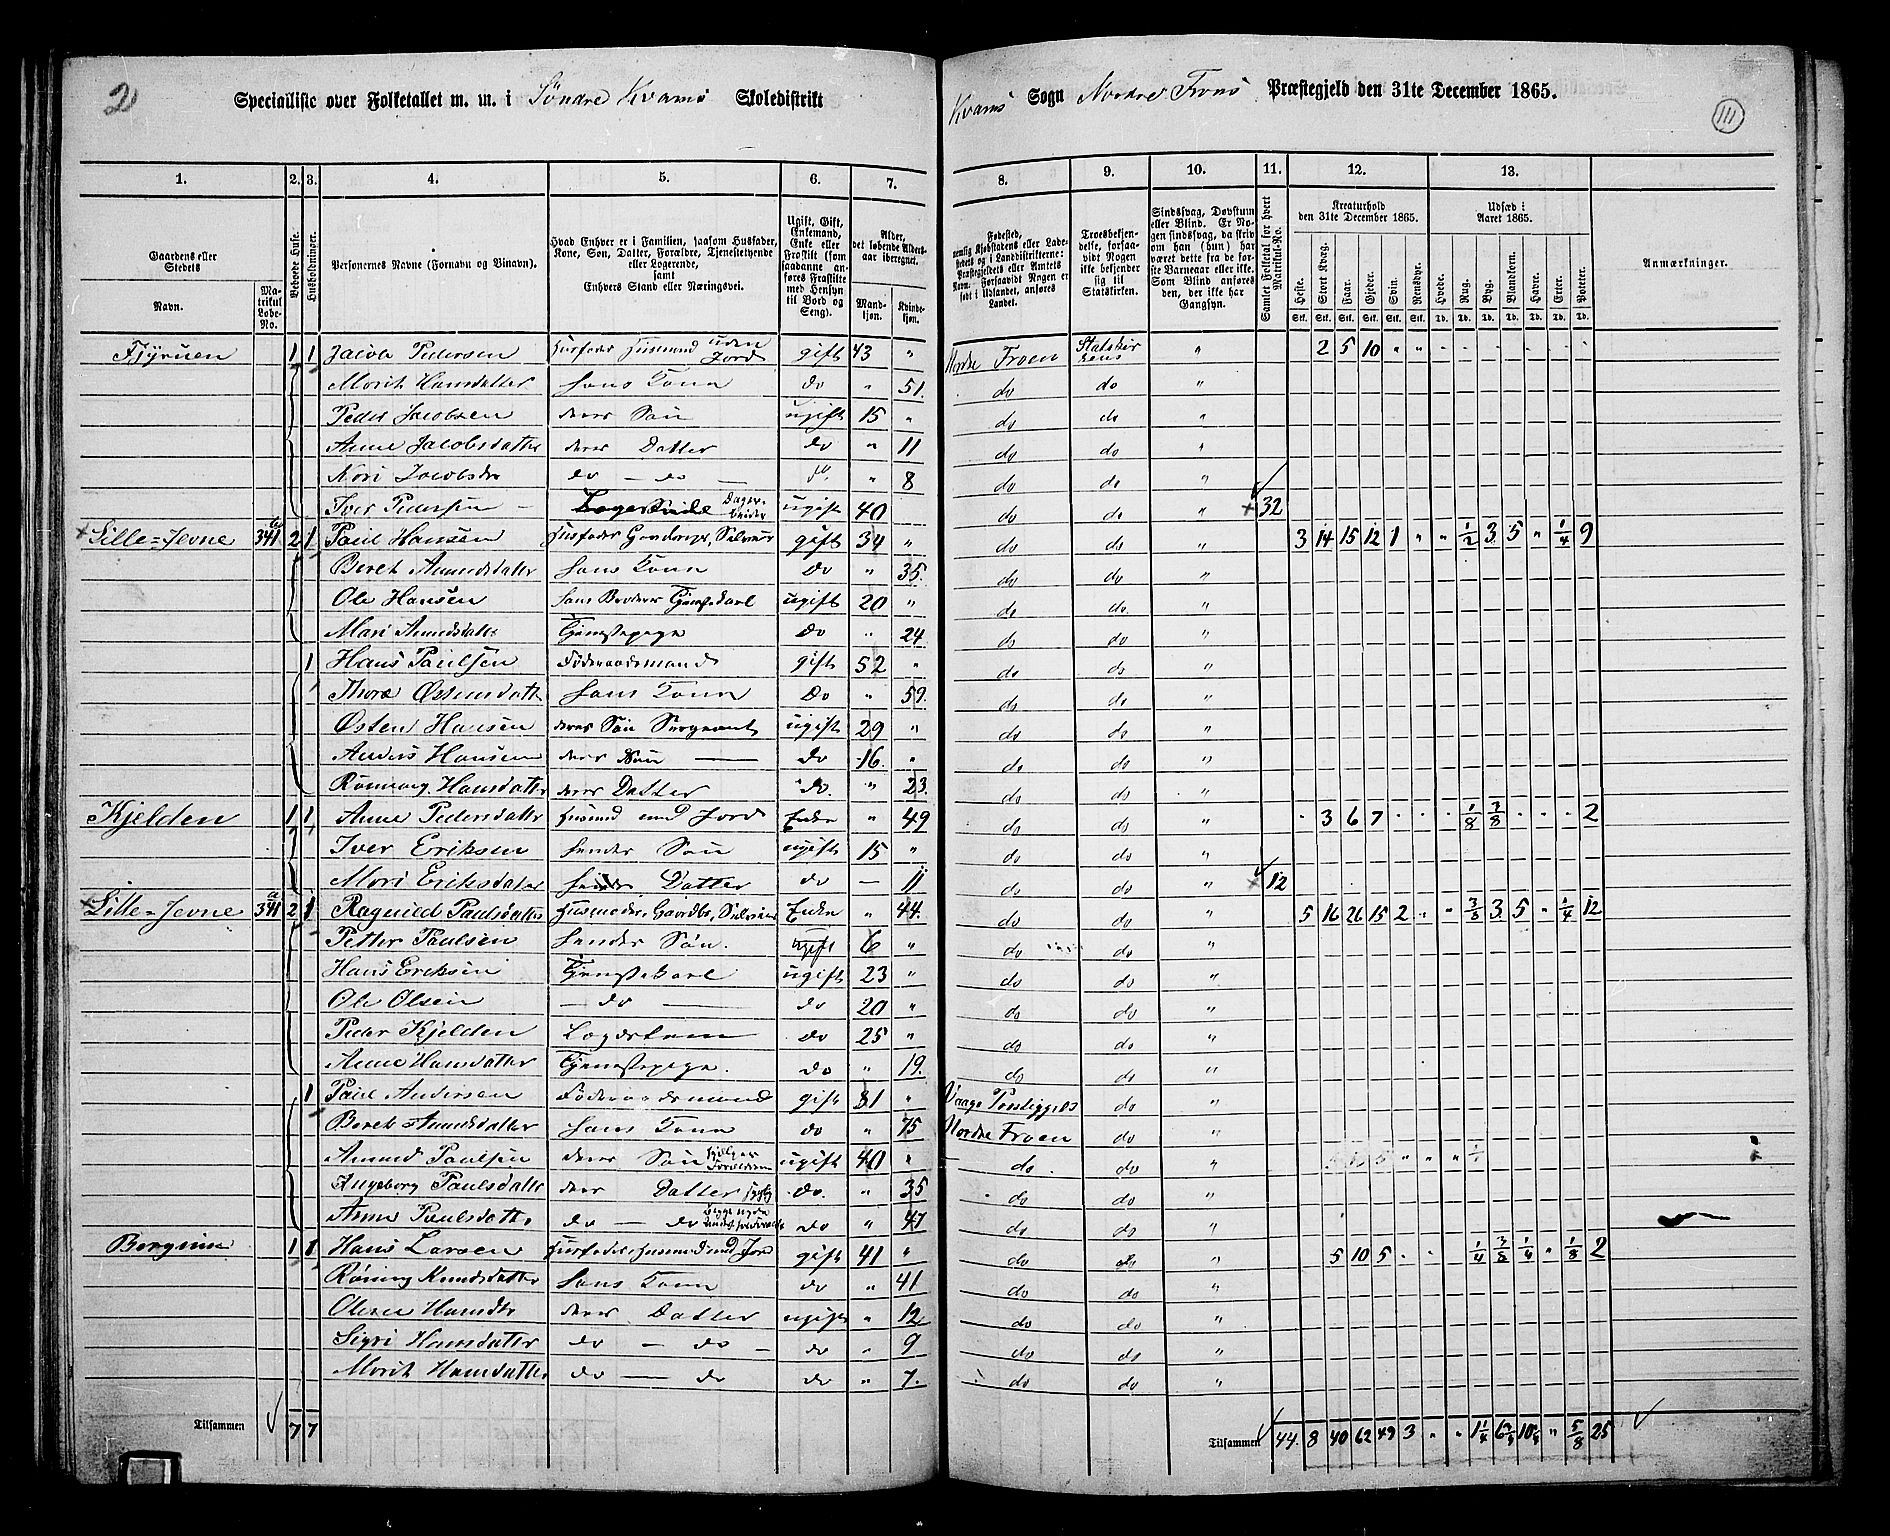 2 Specialliste over Folketallet m. m. i Søndre Kvams Skoledistrikt
Kvams Sogn Nordre Frons Præstegjeld den 31te December 1865. 111
1. 2. 3. 4. 5. 6. 7. 8. 9. 10. 11. 12. 13.
Gaardens eller Stedets
Navn.
Matrikul Løbe-No.
Beboede Huse.
Husholdninger.
Personernes Navne (Fornavn og Tilnavn).
Hvad Enhver er i Familien, saasom Husfader, Kone, Søn, Datter, Forældre, Tjenestetyende eller Logerende, samt Enhvers Stand eller Næringsvei.
Ugift, Gift, Enkemand, Enke eller Fraskilt (som saadanne anføres Fraskilte med Hensyn til Bord og Seng).
Alder, det løbende Aldersaar iberegnet.
Mandkjøn. Kvindekjøn.
Fødested, nemlig Kjøbstadens eller Ladestedets og i Landdistrikterne: Præstegjeldets eller Amtets Navn. Forsaavidt Nogen er født i Udlandet, anføres Landet.
Troesbekjendelse, forsaavidt Nogen ikke bekjender sig til Statskirken.
Sindssvag, Døvstum eller Blind. Er Nogen sindssvag, da skrives om han (hun) har været dette fra de første Barneaar eller ikke. Som Blind anføres den, der ikke har Gangsyn.
Samlet Folketal for hvert Matrikul-No.
Kreaturhold den 31te December 1865.
Heste. Stort Kvæg. Faar. Gjeder. Svin. Rensdyr.
Udsæd i Aaret 1865.
Hvede. Rug. Byg. Blandkorn. Havre. Erter. Poteter.
Anmærkninger.
1 1 Jacob Pedersen Husfader Husmand uden Jord gift 43 " Nordre Froen Statskirkens " 2 5 10 " "
Marit Hansdatter hans Kone do " 51. do do "
Peder Jacobsen deres Søn ugift 15 " do do "
Anne Jacobsdatter deres Datter do " 11 do do "
Mari Jacobsdr do — do " 8 do do "
Iver Pedersen ugift 40 do do " 32
Lille-Jevne 341 2 1 Paul Hansen Husfader Gaardbr, Selveier gift 34 " do do " 3 14 15 12 1 " " 1/2 3 5 " 1/4 9
Beret Amundsdatter hans Kone do " 35. do do "
Ole Hansen hans Broder Tjenestekarl ugift 20 " do do "
Mari Amundsdatter Tjenestepige do " 24 do do "
1 Hans Paulsen Føderaadsmand gift 52 " do do "
Thore Østensdatter hans Kone do " 59. do do "
Østen Hansen deres Søn Sergeant ugift 29 " do do "
Anders Hansen deres Søn — do 16. " do do "
Rønnaug Hansdatter deres Datter do. " 23. do do "
Kjelden 1 1 Anne Pedersdatter Husmd med Jord Enke " 49 do do " 3 6 7 1/8 3/8 2
Iver Eriksen hendes Søn ugift 15 " do do "
Mari Eriksdatter hendes Datter do — 11 do do " 12
Lille-Jevne 341 a 2 1 Ragnild Paulsdatter Husmoder, Gaardbr, Selveier Enke " 44. do do " 5 16 26 15 2 " " 3/8 3 5 " 1/4 12
Petter Paulsen hendes Søn. ugift 6 " do do "
Hans Eriksen Tjenestekarl ugift 23 " do do "
Ole Olsen — do — do 20 " do do "
Peder Kjelden do 25 " do do "
Anne Hansdatter Tjenestepige. do " 19. do do "
1 Paul Andersen Føderaadsmand gift 81 " Vaage do "
Beret Amundsdatter hans Kone do " 75 Nordre Froen do "
Amund Paulsen deres Søn hjelper Forældrene ugift 40 " do do "
Ingeborg Paulsdatter deres Datter do. " 35 do do "
Anne Paulsdatter do — do do " 47 do do "
1 1 Hans Larsen Husfader, Husmand med Jord gift 41 " do do " 5 10 5 1/4 3/8 1/4 " 1/8 2
Rønnog Knudsdatter hans Kone do " 41 do do "
Olene Hansdr deres Datter ugift " 12 do do "
Sigri Hansdatter do — do — do " 9 do do "
Marit Hansdatter do — do do " 7. do do "
Tilsammen 7 7 Tilsammen 44. 8 40 62 49 3 " " 1 1/4 " 5/8 25